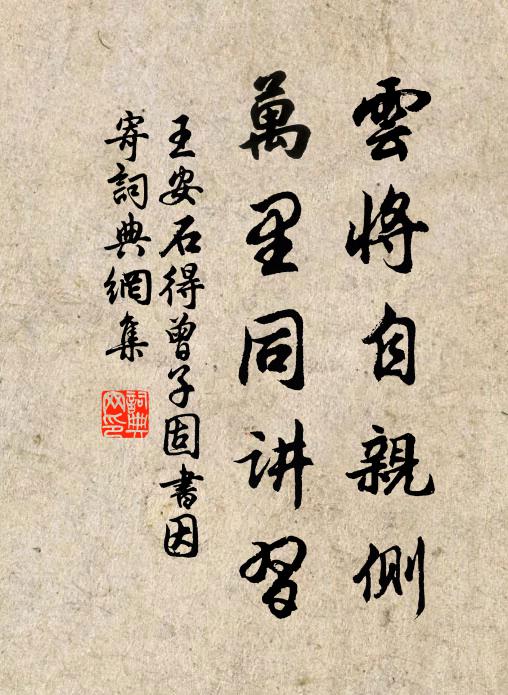 雲將自親側
萬里同讲習
王安石得曾子固書因
寄詞典網集
詞典
网印